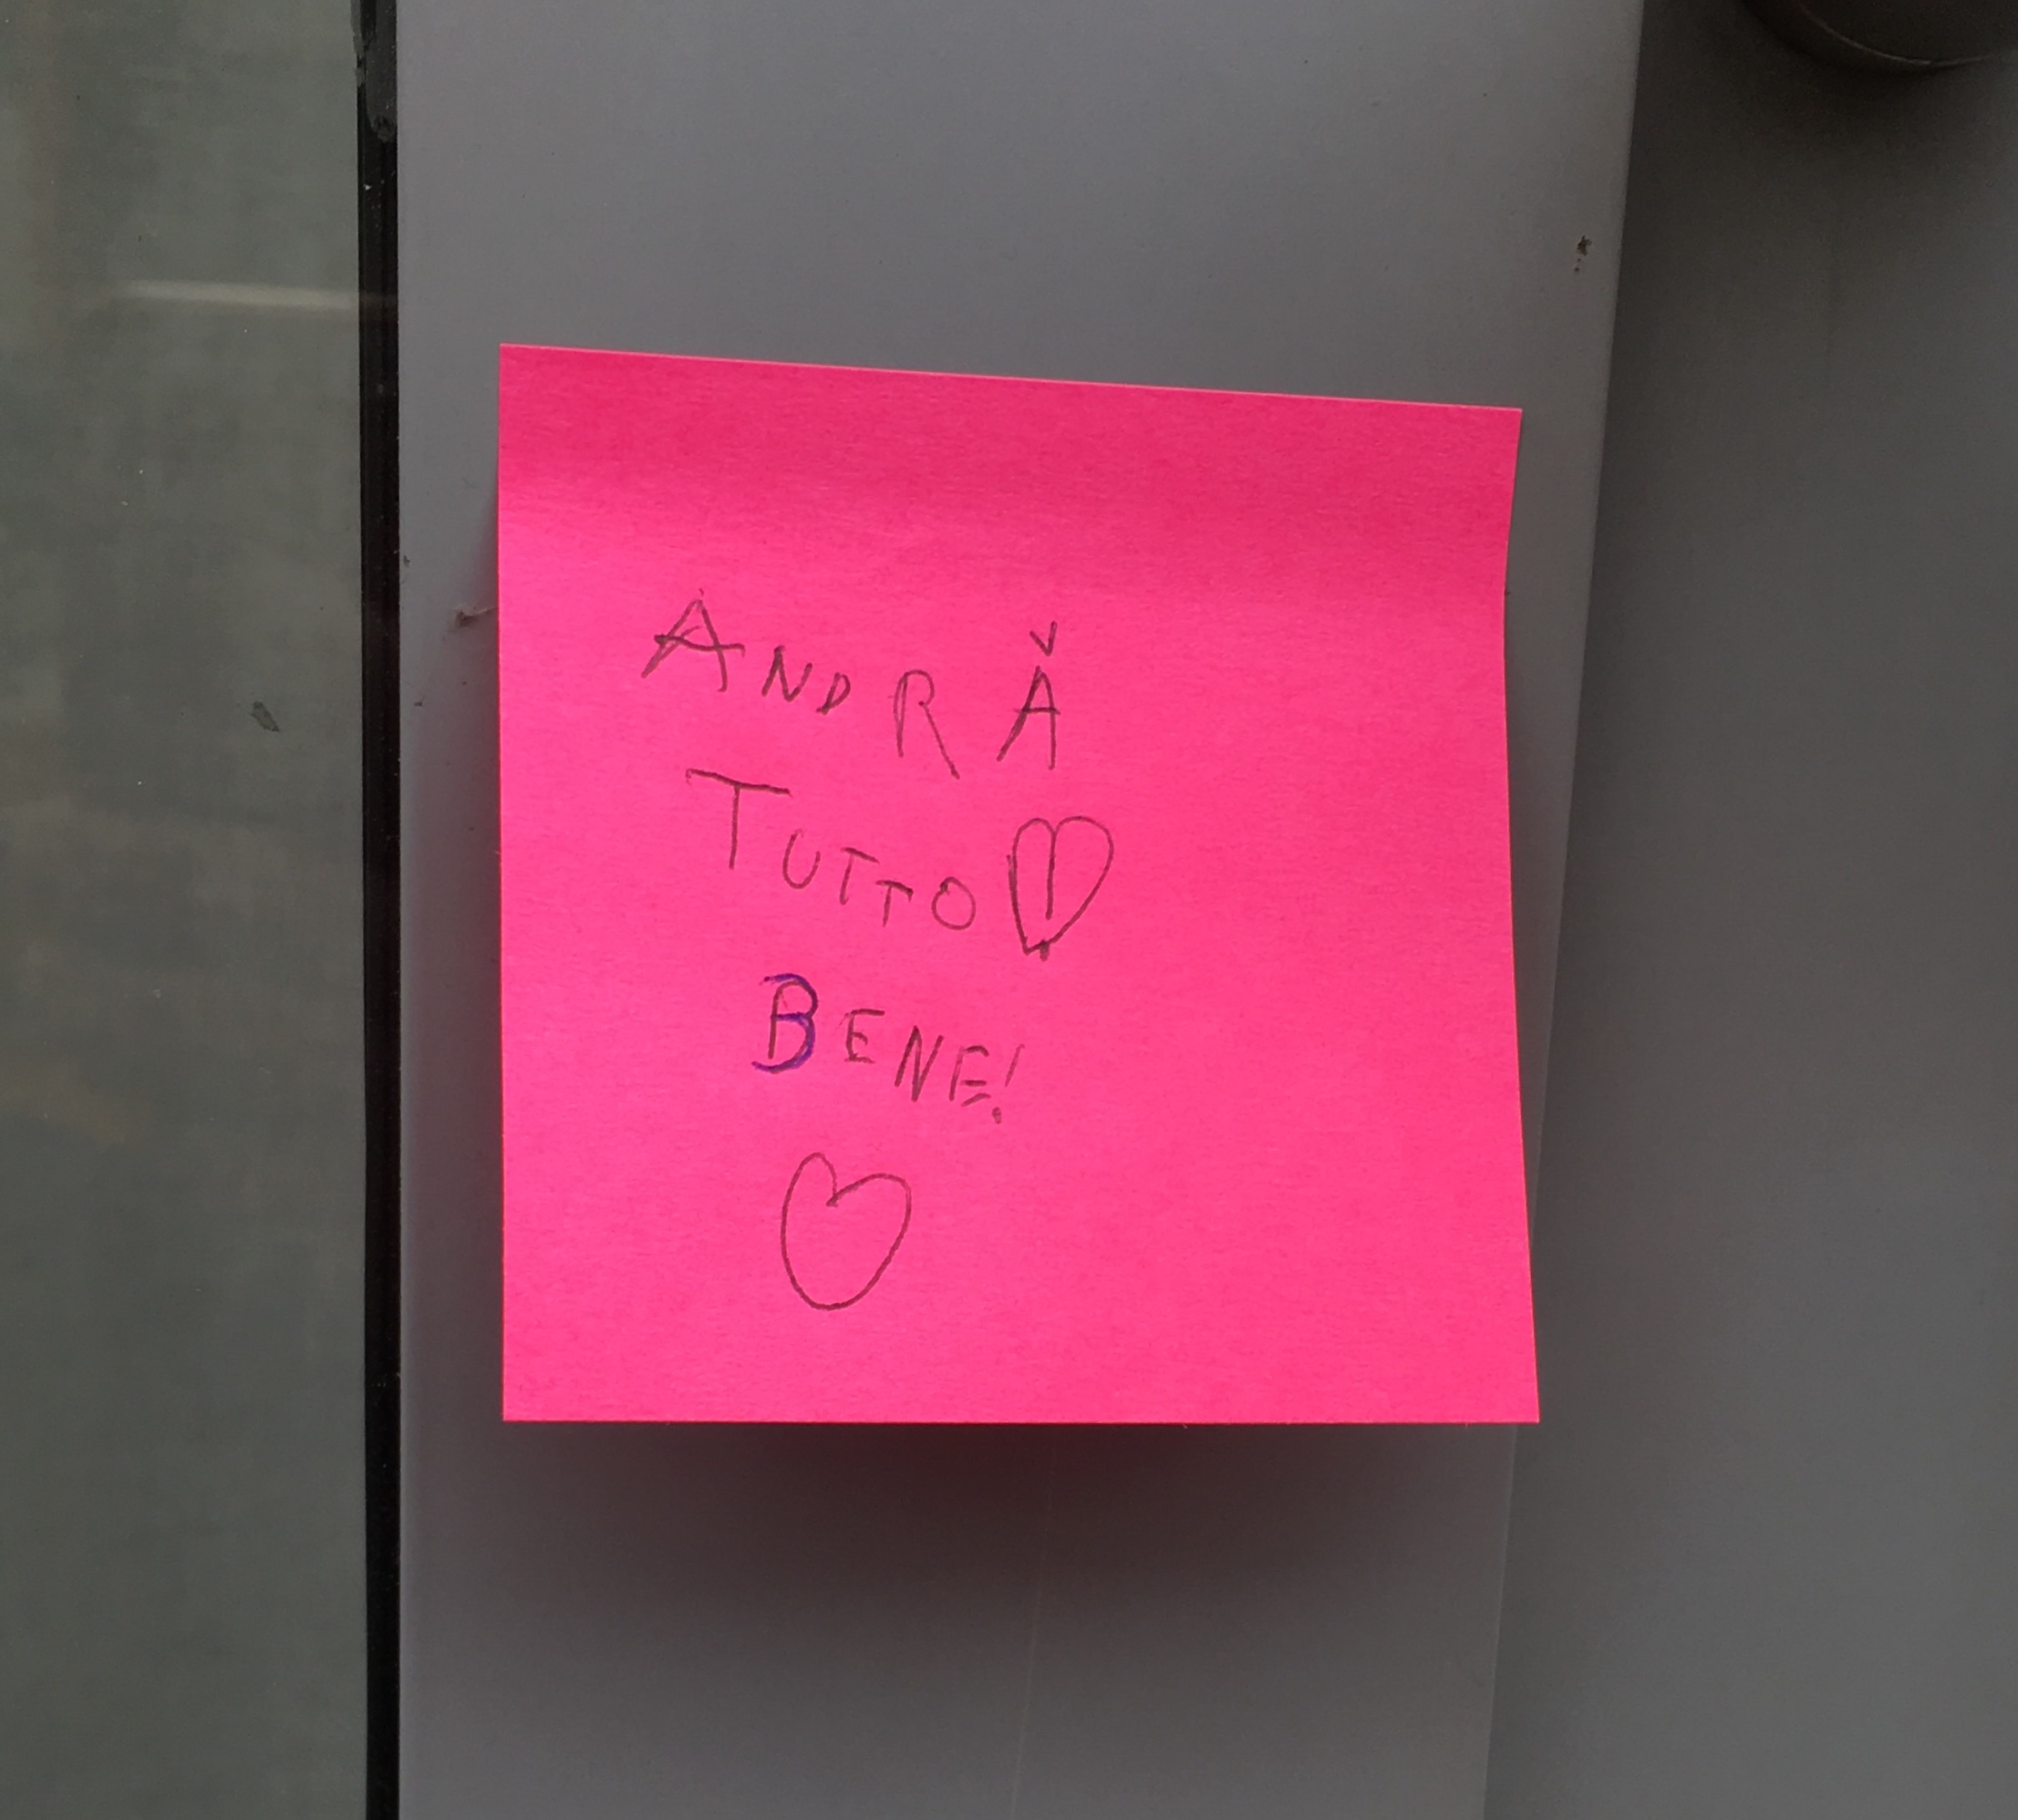 ANDRǍ
TUTTO
BENE!